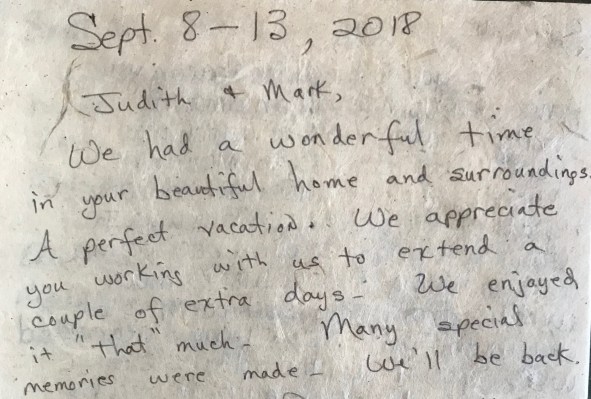 Sept. 8-13, 2018
Judith & Mark,
We had a wonderful time
in your beautiful home and surroundings.
A perfect vacation. We appreciate
you working with us to extend a
couple of extra days- We enjoyed
it "that" much- Many special
memories were made- We'll be back.